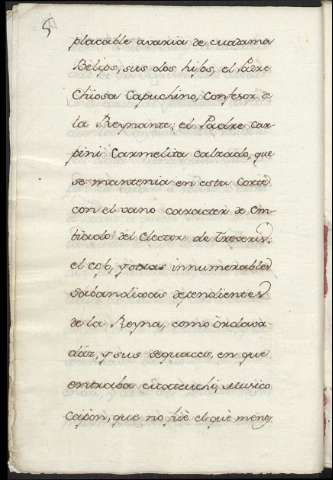 5
placable avaricia de madama
Belips, sus dos hijos, el Padre
Chiosa Capuchino, Confesor de
la Reynante; el Padre Car-
pini Carmelita calzado, que
se mantenia en esta Corte
con el vano caracter de Em-
biado del Elector de Treveris,
el coxo, y otras innumerables
sabandixas dependientes
de la Reyna, como criadas
y sus sequaces, en que
entraba Musico
Capon, que no fue el que meng